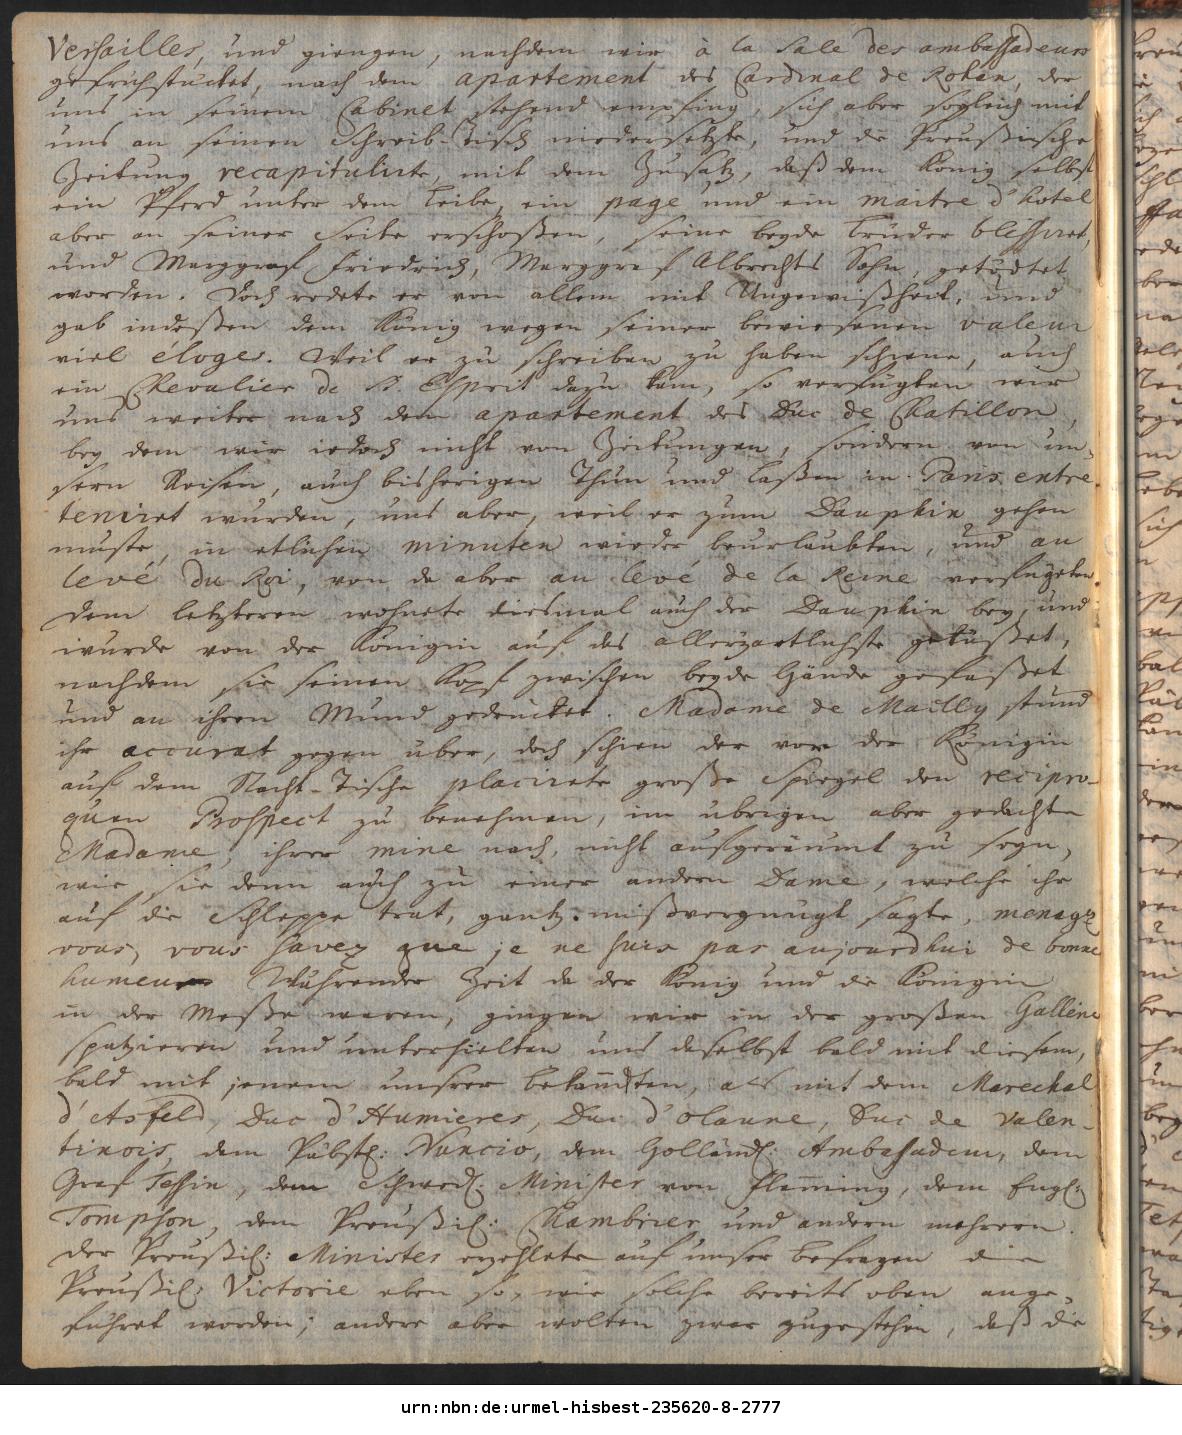 Versailles, und giengen, nachdem wir à la Sale des ambassadeurs
gefrühstücket, nach dem apartement des Cardinal de Rohan, der
uns in seinem Cabinet stehend empfing, sich aber sogleich mit
uns an seinen Schreib-Tisch niedersetzte, und die Preußische
Zeitung recapitulirte, mit dem Zusatz, daß dem König selbst
ein Pferd unter dem Leibe, ein page und ein maitre d'hotel
aber an seiner Seite erschoßen, seine beyde Brüder blessiret,
und Marggraf Friedrich, Marggraf Albrechts Sohn, getödtet
worden. Doch redete er von allem mit Ungewißheit, und
gab indeßen dem König wegen seiner bewiesenen valeur
viel éloges. Weil er zu schreiben zu haben schiene, auch
ein Chevalier de S. Esprit dazu kam, so verfügten wir
uns weiter nach dem apartement des Duc de Chatillon,
bey dem wir iedoch nicht von Zeitungen, sondern von un-
sern Reisen, auch bisherigen Thun und Laßen in Paris entre-
teniret wurden, uns aber, weil er zum Dauphin gehen
muste, in etlichen minuten wieder beurlaubten, und au
levé du Roi, von da aber au levé de la Reine verfügten.
Dem letzteren wohnete diesmal auch der Dauphin bey, und
wurde von der Königin auf das allerzärtlichste geküßet,
nachdem sie seinen Kopf zwischen beyde Hände gefaßet
und an ihren Mund gedrücket. Madame de Mailly stund
ihr accurat gegen über, doch schien der vor der Königin
auf dem Nacht-Tische placirete große Spiegel den recipro-
quen Prospect zu benehmen, im übrigen aber gedachte
Madame, ihrer mine nach, nicht aufgeräumt zu seyn,
wie sie denn auch zu einer andern Dame, welche ihr
auf die Schleppe trat, gantz mißvergnügt sagte, menagez
vous, vous savez que je ne suis pas aujourdhui de bonne
humeur. Während der Zeit da der König und die Königin
in der Meße waren, gingen wir in der großen Gallerie
spatzieren und unterhielten uns daselbst bald mit diesem,
bald mit jenem unsrer bekannten, als mit dem Marechal
d'Asfeld, Duc d'Humieres, Duc d'Olonne, Duc de Valen-
tinois, dem Päbstl: Nuncio, dem Holländ: Ambassadeur, dem
Graf Tessin, dem Schwed: Minister von Flemming, dem Engl:
Tompson, dem Preußis: Chambrier und andern mehrern.
Der Preußis: Minister erzehlete auf unser befragen die
Preußis: Victorie eben so, wie solche bereits oben ange-
führet worden; andere aber wolten zwar zugestehen, daß die
urn:nbn:de:urmel-hisbest-235620-8-2777